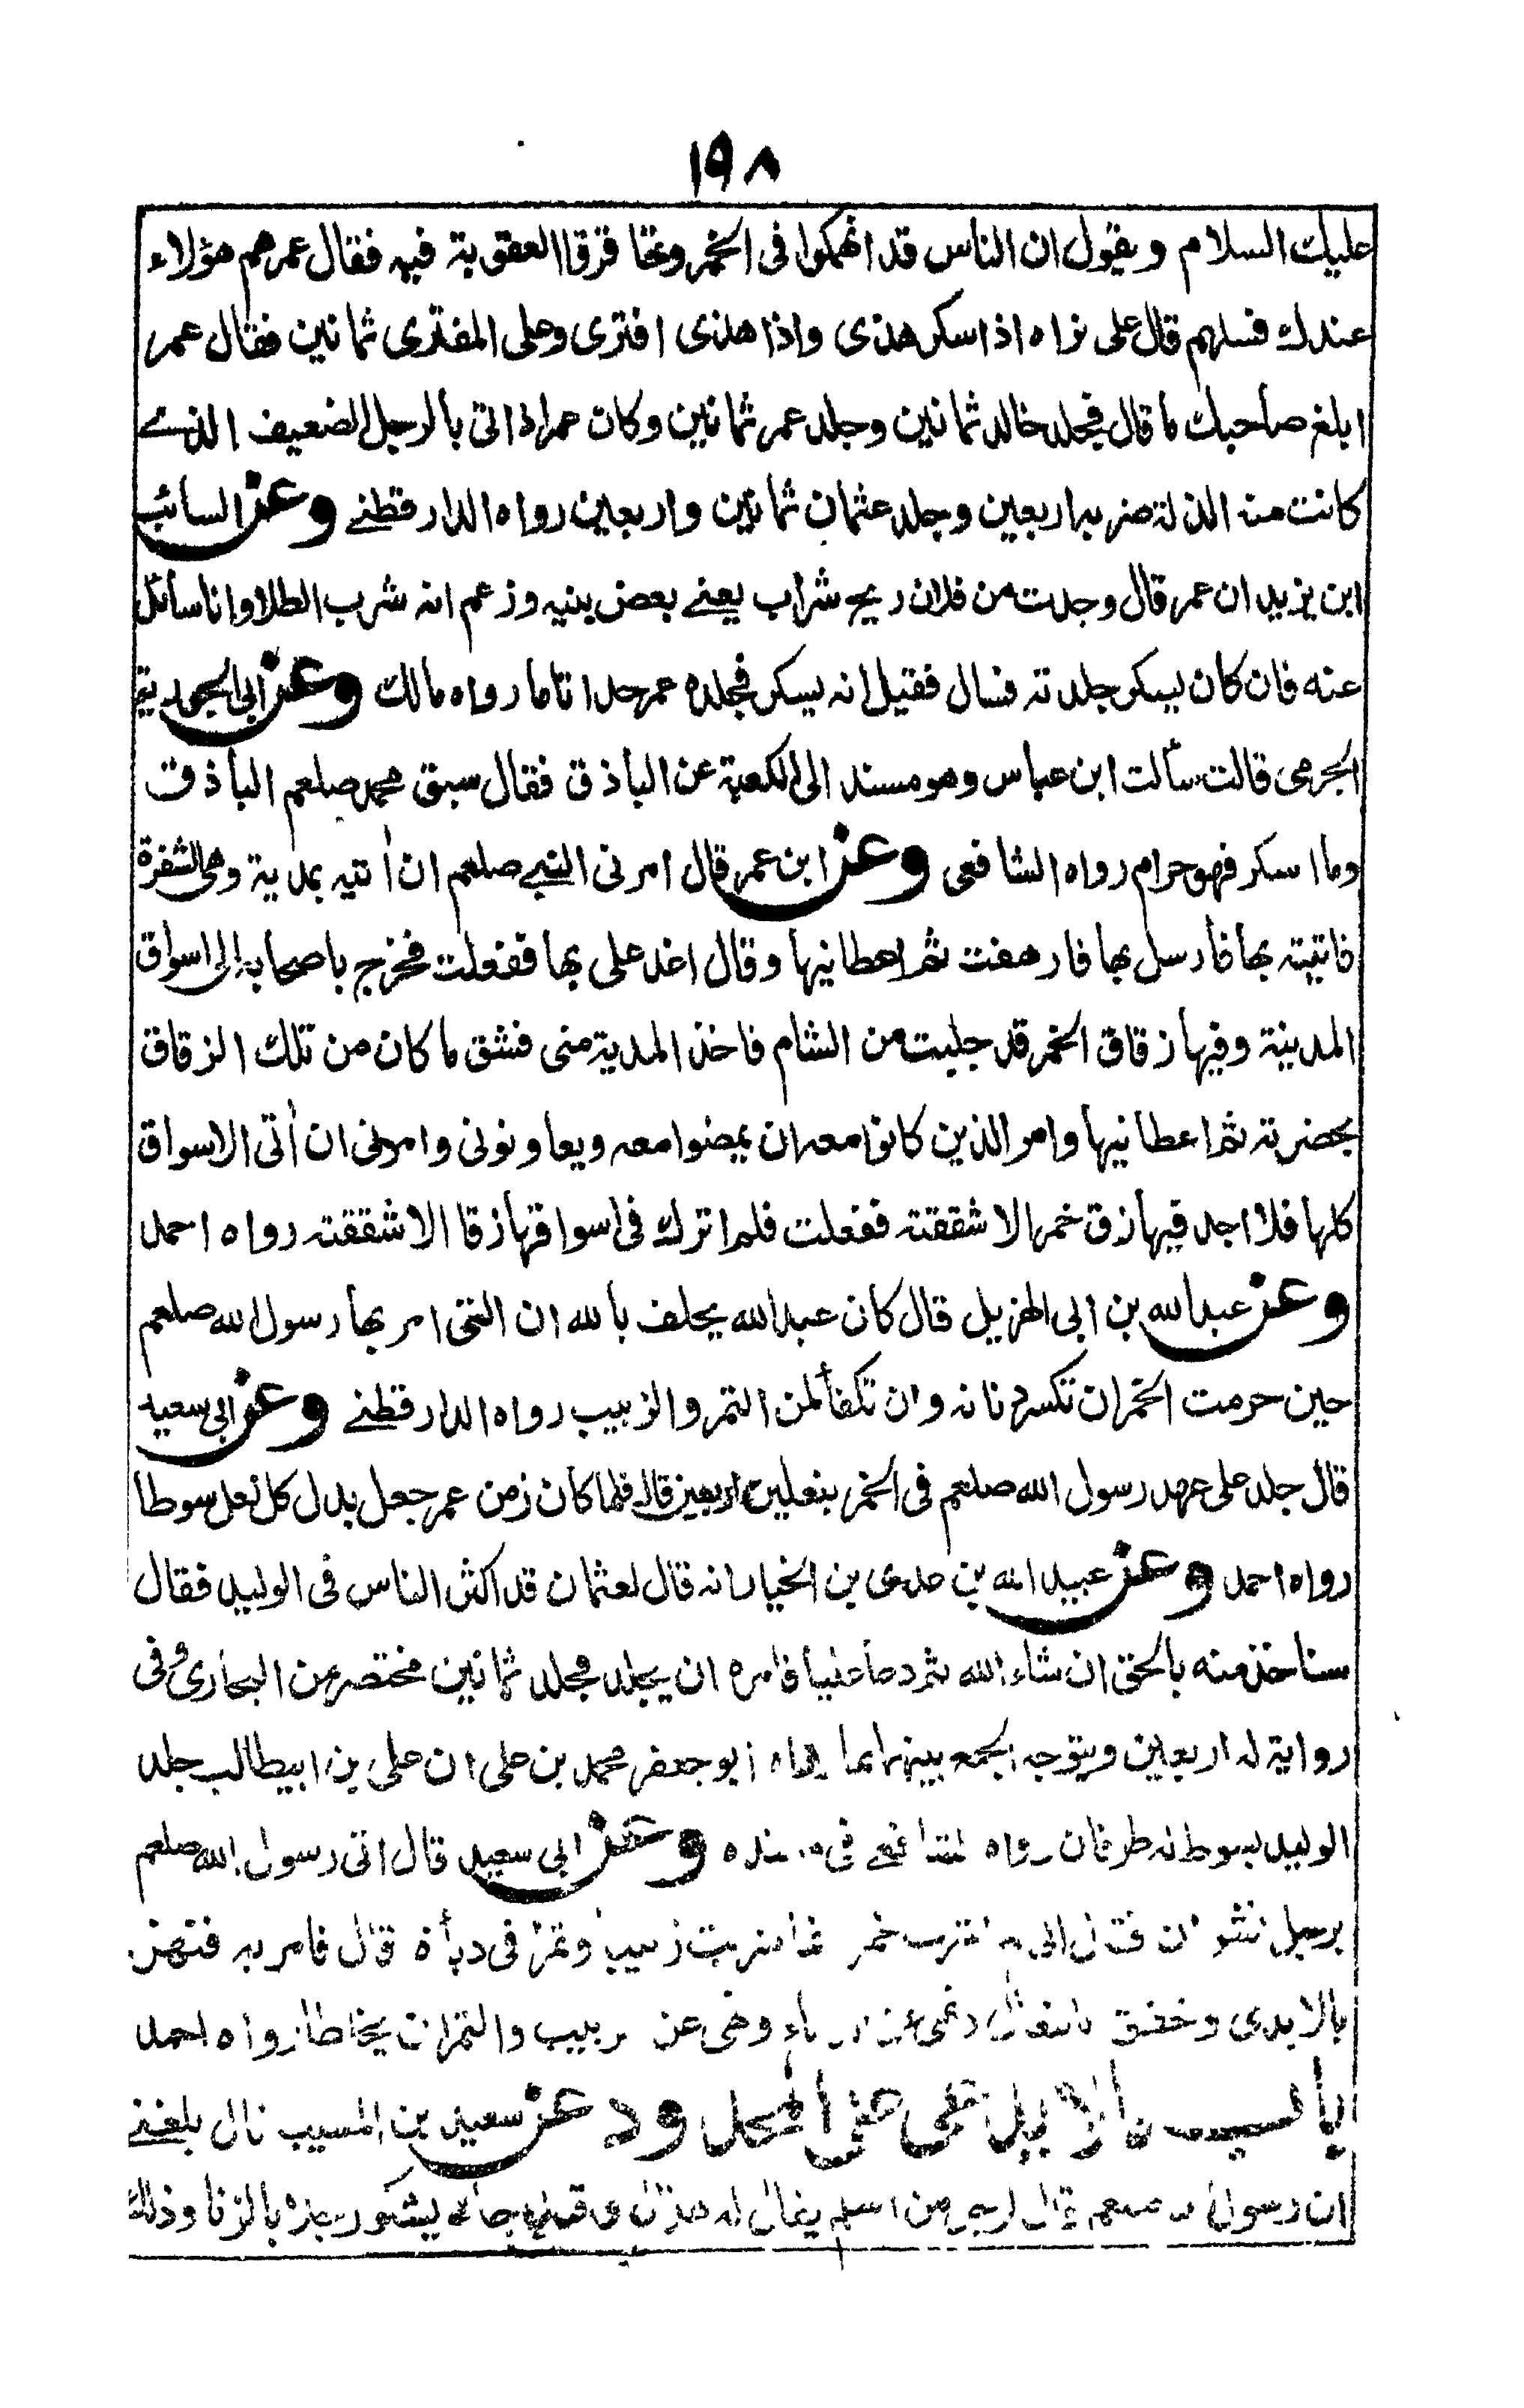 ١٩٨
عليك السلام ويقول ان الناس قد انهمكوا في الخمر وتحاقروا العقوبة فيه فقال عمر هم هؤلاء
عندك فسلهم قال على نراه اذا سكر هذى واذا هذى افترى وعلى المفترى ثمانين فقال عمر
ابلغ صاحبك ما قال فجلد خالد ثمانين وجلد عمر ثمانين وكان عمر اذا اتى بالرجل الضعيف الذے
كانت منه الذلة ضربه اربعين وجلد عثمان ثمانين واربعين رواه الدارقطنے وعن السائب
ابن يزيد ان عمر قال وجدت من فلان ريح شراب يعنے بعض بنيه وزعم انه شرب الطلا وانا سائل
عنه فان كان يسكر جلدته فسال فقيل انه يسكر فجلده عمر حدا تاما رواه مالك وعن ابى الجويرية
الجرمى قالت سألت ابن عباس وهو مسند الى الكعبة عن الباذق فقال سبق محمد صلعم الباذق
وما اسكر فهو حرام رواه الشافعى وعن ابن عمر قال امرنى النبے صلعم ان اٰتيه بمدية وهى الشفرة
فاتيته بها فارسل بها فارهفت ثم اعطانيها وقال اغد على بها ففعلت فخرج باصحابه الى اسواق
المدينة وفيها زقاق الخمر قد جلبت من الشام فاخذ المدية منى فشق ما كان من تلك الزقاق
بحضرته ثم اعطانيها وامر الذين كانوا معه ان يمضوا معه ويعاونونى وامرنى ان اٰتى الاسواق
كلها فلا اجد فيها زق خمر الا شققته ففعلت فلم اترك فى اسواقها زقا الا شققته رواه احمد
وعن عبد الله بن ابى الهزيل قال كان عبد الله يحلف بالله ان التى امر بها رسول الله صلعم
حين حرمت الخمر ان تكسر دنانه وان تكفأ لمن التمر والزبيب رواه الدارقطنے وعن ابى سعيد
قال جلد على عهد رسول الله صلعم فى الخمر بنعلين اربعين قال فلما كان زمن عمر جعل بدل كل نعل سوطا
رواه احمد وعن عبيد الله بن عدى بن الخيار انه قال لعثمان قد اكثر الناس فى الوليد فقال
سناخذ منه بالحق ان شاء الله ثم دعا عليا فامره ان يجلد فجلد ثمانين مختصر من البخارى وفى
رواية له اربعين ويتوجه الجمع بينهما بما رواه ابو جعفر محمد بن على ان على بن ابيطالب جلد
الوليد بسوط له طرفان رواه الشافعے فى مسنده وعن ابى سعيد قال اتى رسول الله صلعم
برجل نشوان فقال انى لم اشرب خمرا انما شربت زبيبا وتمرا فى دباءة قال فامر به فنهز
بالايدى وخفق بالنعال ونهى عن الدباء ونهى عن الزبيب والتمر ان يخلطا رواه احمد
باب ما لا يدعى على المحدود عن سعيد بن المسيب قال بلغنے
ان رسول الله صلعم قال لرجل من اسلم يقال له هزال وقد جاء يشكو رجلا بالزنا وذلك